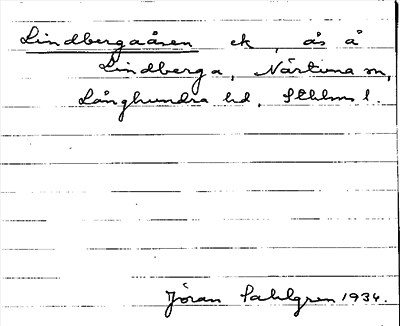 Lindbergaåsen ek, ås å
Lindberga, Närtuna sn,
Långhundra hd, Sthlms l.
Jöran Sahlgren 1934.